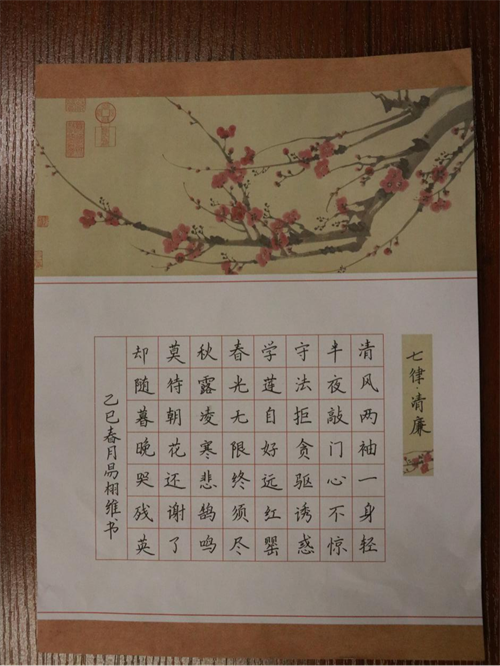 七律·清廉
清风两袖一身轻
半夜敲门心不惊
守法拒贪驱诱惑
学莲自好远红罂
春光无限终须尽
秋露凌寒悲鹄鸣
莫待朝花还谢了
却随暮晚哭残英
乙巳春月易栩维书